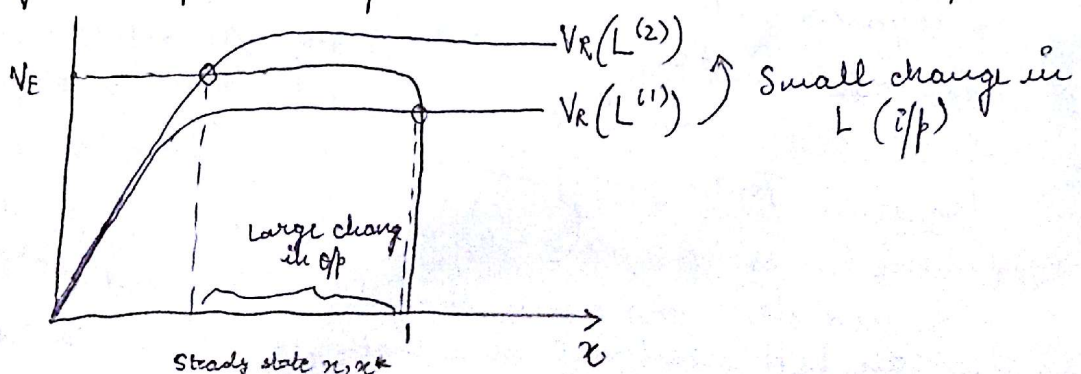 V_R(L^(2))
V_E
Small change in
V_R(L^(1))
L (i/p)
Large chang
in o/p
x
Steady state x, x*